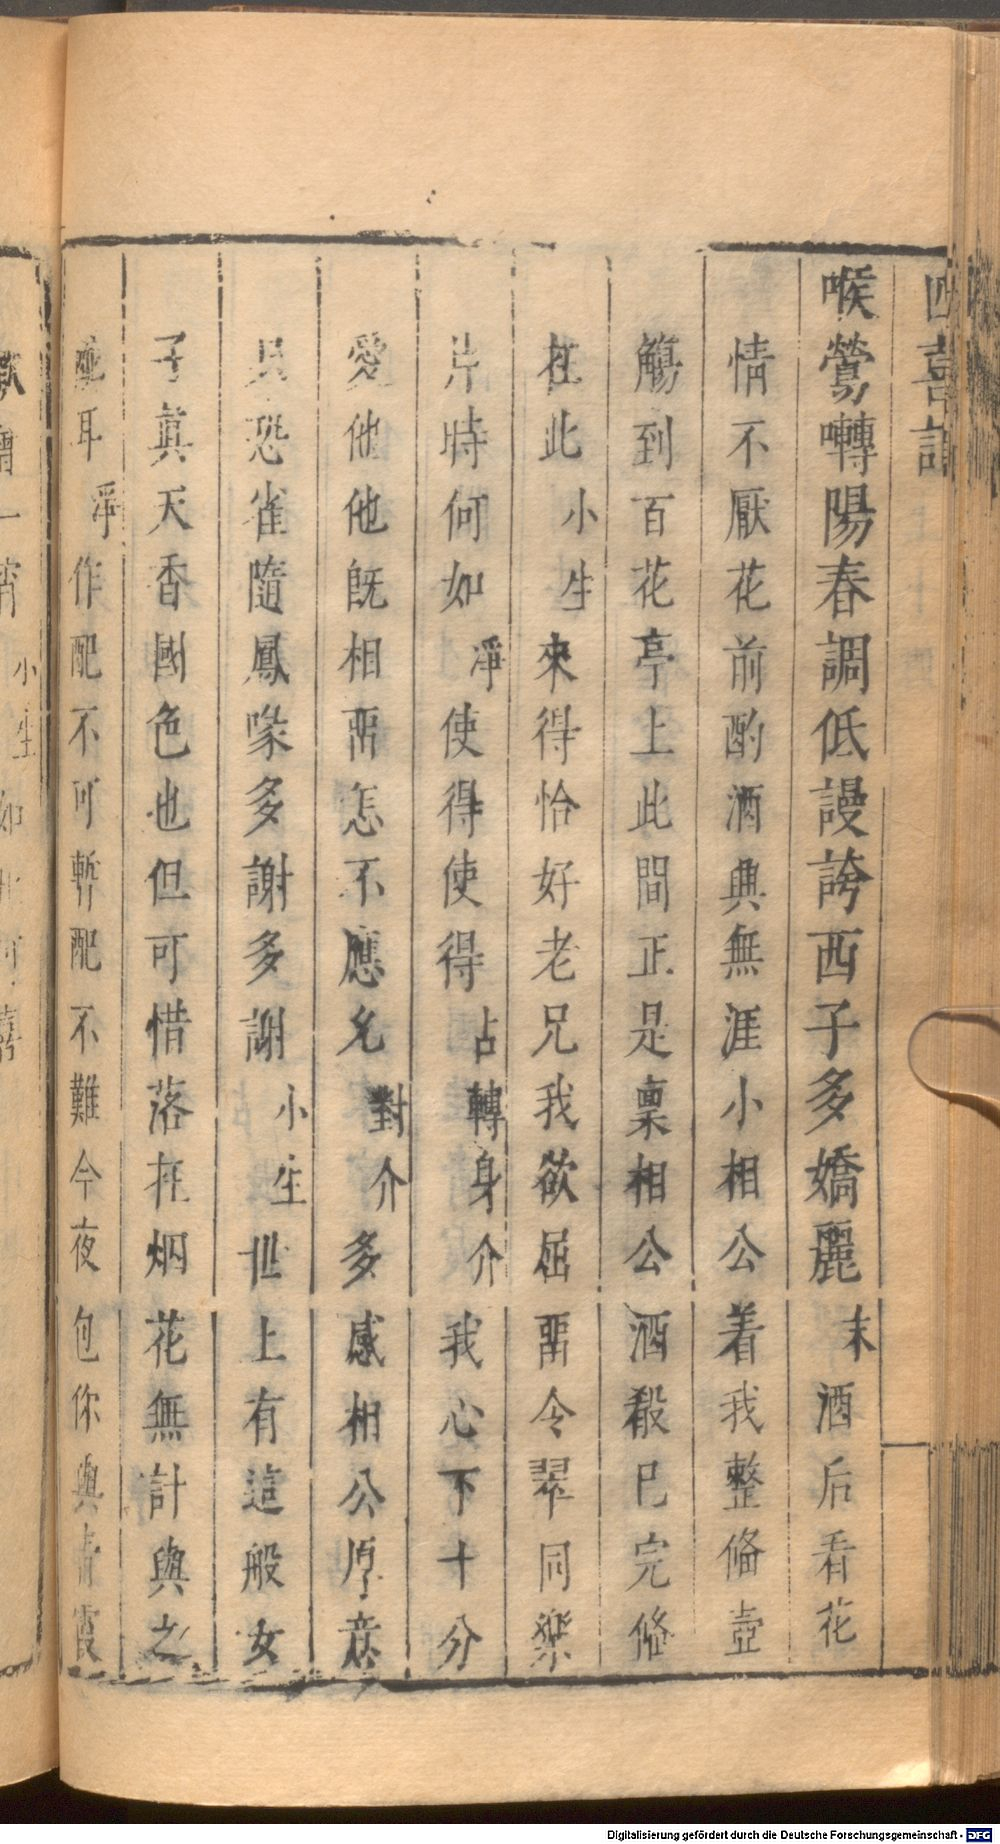 四喜記
喉鶯囀陽春調低謾誇西子多嬌麗末酒后看花
情不厭花前酌酒興無涯小相公着我整俻壺
觴到百花亭上此間正是稟相公酒殽已完俻
在此小生來得恰好老兄我欲屈畱令翠同樂
片時何如淨使得使得占轉身介我心下十分
愛他他旣相畱怎不應允對介多感相公厚意
只恐雀隨鳳喙多謝多謝小生世上有這般女
子真天香國色也但可惜落在烟花無計與之
耳淨作配不可暫配不難今夜包你與青霞
一宵小生如此
Digitalisierung gefördert durch die Deutsche Forschungsgemeinschaft - DFG